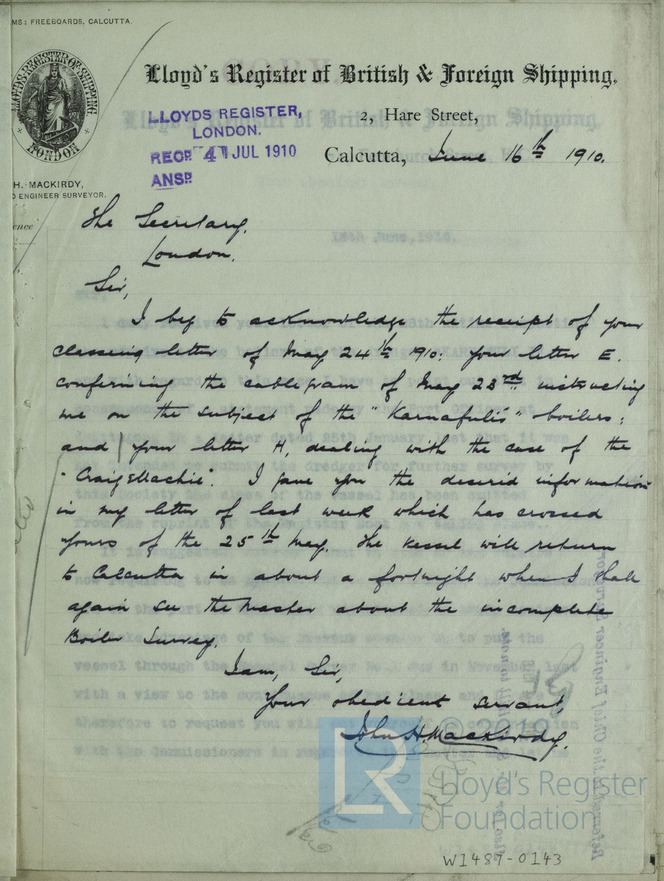 MS: FREEBOARDS, CALCUTTA.
LLOYD'S REGISTER OF SHIPPING
LONDON
Lloyd's Register of British & Foreign Shipping.
2, Hare Street,
LLOYDS REGISTER,
LONDON.
RECD. 4 JUL 1910
ANSD.
Calcutta, June 16th 1910.
H. MACKIRDY,
ENGINEER SURVEYOR.
The Secretary,
London.
Sir,
I beg to acknowledge the receipt of your
classing letter of May 24th 1910: your letter E.
confirming the cablegram of May 23rd instructing
me on the subject of the "Karnafuli's" boilers:
and your letter H, dealing with the case of the
"Craig
I gave you the desired information
in my letter of last week which has crossed
yours of the 25th May. The vessel will return
to Calcutta in about a fortnight when I shall
again see the Master about the incomplete
Boiler Survey.
I am, Sir,
Your obedient servant,
John H Mackirdy.
© 2019
LR Lloyd's Register
Foundation
W1487-0143